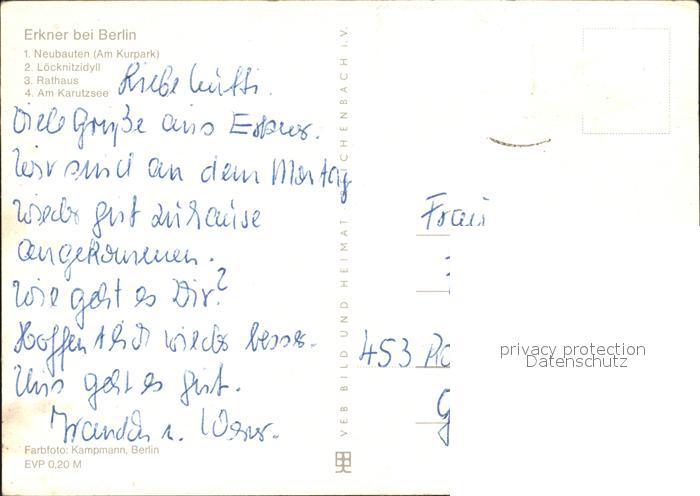 Erkner bei Berlin
1. Neubauten (Am Kurpark)
2. Löcknitzidyll
3. Rathaus
4. Am Karutzsee
Liebe Mutti.
Viele Grüße aus Erkner.
Wir sind an dem Montag
wieder gut zuhause
angekommen.
Wie geht es Dir?
Hoffentlich wieder besser.
Uns geht es gut.
u. Werner.
Farbfoto: Kampmann, Berlin
EVP 0,20 M
VEB BILD UND HEIMAT REICHENBACH i.V.
Frau
453
privacy protection
Datenschutz